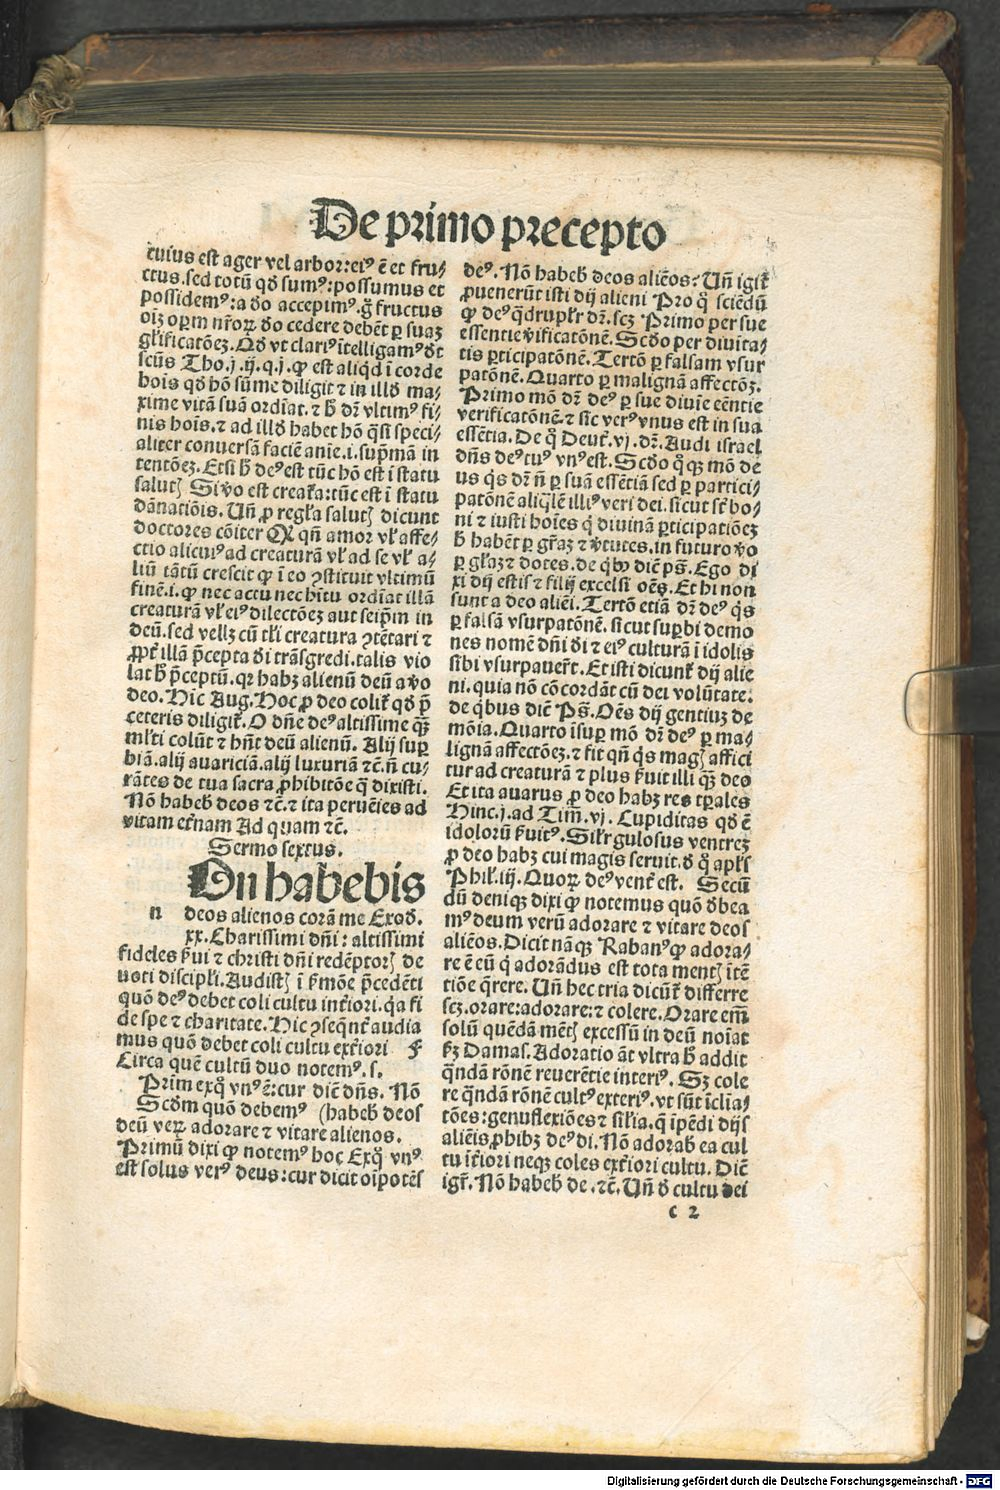 De primo precepto
cuius est ager vel arbor: eiꝰ ē et fru⸗
ctus. sed totū qđ sumꝰ: possumus et
possidemꝰ: a đo accepimꝰ. g̊ fructus
oīꝫ oꝑm nr̄oꝝ đo cedere debēt ꝑ suaꝫ
gl̓ificatōeꝫ. Qđ vt clariꝰ ītelligamꝰ
scūs Tho. j. ij. q. j. ꝙ est aliqđ ī corde
hoīs qđ hō sūme diligit ⁊ in illđ ma⸗
xime vitā suā ordīat. ⁊ ħ dr̄ vltimꝰ fi⸗
nis hoīs. ⁊ ad illđ habet hō q̄si speci⸗
aliter conversā faciē anie. i. sup̄mā in
tentōeꝫ. Etsi ħ deꝰ est tūc hō est ī statu
salutꝭ Si v̓o est creat̓a: tūc est ī statu
dānatiōis. Uñ ꝓ regl̓a salutꝭ dicunt
doctores cōiter Qꝛ qn̄ amor vl̓ affe⸗
ctio alicuiꝰ ad creaturā vl̓ ad se vl̓ a⸗
liū tātū crescit ꝙ ī eo ꝯstituit vltimū
finē. i. ꝙ nec actu nec hītu ordīat illā
creaturā vl̓ eiꝰ dilectōeꝫ aut seip̄m in
deū. sed vellꝫ cū tl̓i creatura ꝯtētari ⁊
ꝓpt̓ illā p̄cepta đi trāsgredi. talis vio
lat ħ p̄ceptū. qꝛ habꝫ alienū deū a v̓o
deo. Hic Aug. Hoc ꝓ deo colit̓ qđ p̄
ceteris diligit̓. O dn̄e deꝰ altissime qꝫ̄
ml̓ti colūt ⁊ hn̄t deū alienū. Alij suꝑ
biā. alij avariciā. alij luxuriā ⁊c̄. n̄ cu⸗
rātes de tua sacra ꝓhibitōe q̄ dixisti.
Nō habeƀ deos ⁊c̄. ⁊ ita pervēies ad
vitam et̓nam Ad quam ⁊c̄.
Sermo sextus.
On habebis
n deos alienos corā me Exođ.
xx. Charissimi dn̄i: altissimi
fideles s̓ui ⁊ christi dn̄i redēptorꝭ de
uoti discipl̓i. Audistꝭ ī s̓mōe p̄cedēti
quō deꝰ debet coli cultu int̓iori. q̓a fi
de spe ⁊ charitate. Hic ꝯseqn̄t̓ audia
mus quō debet coli cultu ext̓iori
Circa quē cultū duo notemꝰ. s.
Prim exq̊ vnꝰ ē: cur dic̄ dn̄s. Nō
Scđm quō debemꝰ (habeƀ deos
deū veꝝ adorare ⁊ vitare alienos.
Primū dixi ꝙ notemꝰ hoc Exq̊ vnꝰ
est solus verꝰ deus: cur dicit oīpotēs
deꝰ. Nō habeƀ deos aliēos? Uñ igit̓
ꝓuenerūt isti dij alieni Pro q̊ sciēdū
ꝙ deꝰ q̄drupl̓r dr̄. scꝫ Primo per sue
essentie v̓ificatōnē. Scđo per divita⸗
tis ꝑticipatōnē. Tertō ꝑ falsam vsur
patōnē. Quarto ꝑ malignā affectōꝫ.
Primo mō dr̄ deꝰ ꝑ sue divīe eēntie
verificatōnē. ⁊ sic verꝰ vnus est in sua
essētia. De q̊ Deut̓. vj. dr̄. Audi israel
dn̄s deꝰ tuꝰ vnꝰ est. Scđo q̊qꝫ mō de
us q̊s dr̄ n̄ ꝑ suā essētiā sed ꝑ partici⸗
patōnē aliq̄lē illiꝰ veri dei. sicut st̄ bo⸗
ni ⁊ iusti hoīes q̊ divinā ꝑticipatiōeꝫ
ħ habēt ꝑ gr̄aꝫ ⁊ v̓tutes. in futuro v̓o
ꝑ gl̓aꝫ ⁊ dotes. de qͥbꝰ dic̄ ps̄. Ego di
xi dij estis ⁊ filij excelsi oēs. Et hi non
sunt a deo aliēi. Tertō etiā dr̄ deꝰ q̊s
ꝑ falsā vsurpatōnē. sicut suꝑbi demo
nes nomē dn̄i đi ⁊ eiꝰ culturā ī idolis
sibi vsurpauer̄t. Et isti dicunt̓ dij alie
ni. quia nō cōcordāt cū dei volūtate.
de qͥbus dic̄ Ps̄. Oēs dij gentiuꝫ de
mōia. Quarto īsuꝑ mō dr̄ deꝰ ꝑ ma⸗
lignā affectōeꝫ. ⁊ fit qn̄ q̊s magꝭ affici
tur ad creaturā ⁊ plus s̓uit illi qꝫ̄ deo
Et ita avarus ꝓ deo habꝫ res tꝑales
Hinc. j. ad Tim̄. vj. Cupiditas qđ ē
idolorū s̓uitꝰ. Sil̓r gulosus ventreꝫ
ꝓ deo habꝫ cui magis servit. đ q̊ apl̓s
Phil̓. iij. Quoꝝ deꝰ vent̓ est. Secū
dū deniqꝫ dixi ꝙ notemus quō đbea
mꝰ deum verū adorare ⁊ vitare deos
aliēos. Dicit nāqꝫ Rabanꝰ ꝙ adora⸗
re ē eū q̊ adorādus est tota mentꝭ ītē
tiōe q̄rere. Uñ hec tria dicūt̓ differre
scꝫ. orare: adorare: ⁊ colere. Orare em̄
solū quēdā mētꝭ excessū in deū noīat
s̓ꝫ Damas. Adoratio āt vltra ħ addit
q̄ndā rōnē reverētie interiꝰ. Sꝫ cole
re q̄ndā rōnē cultꝰ exteriꝰ. vt sūt īclīa⸗
tōes: genuflexiōes ⁊ sil̓ia. q̄ īpēdi dijs
aliēis ꝓhibꝫ deꝰ di. Nō adoraƀ ea cul
tu īt̓iori neqꝫ coles ext̓iori cultu. Dic̄
igr̄. Nō habeƀ de. ⁊c̄. Uñ đ cultu dei
c 2
Digitalisierung gefördert durch die Deutsche Forschungsgemeinschaft - DFG